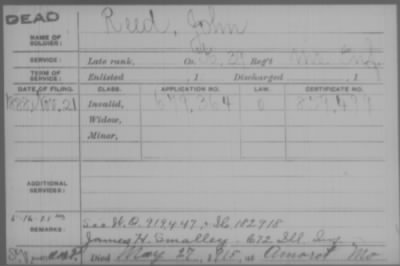 DEAD
NAME OF SOLDIER: Reed, John
SERVICE: Late rank, Co. Reg't Mo. Inf.
TERM OF SERVICE: Enlisted , 1 Discharged , 1
DATE OF FILING. CLASS. APPLICATION NO. LAW. CERTIFICATE NO.
1888 Nov. 21 Invalid, 679,364
Widow,
Minor,
ADDITIONAL SERVICES:
REMARKS: See W.O. 919,447, & Sb 182918
James H. Smalley - 672 Ill. Inf.
Died May 27, 1915, at Amoret Mo